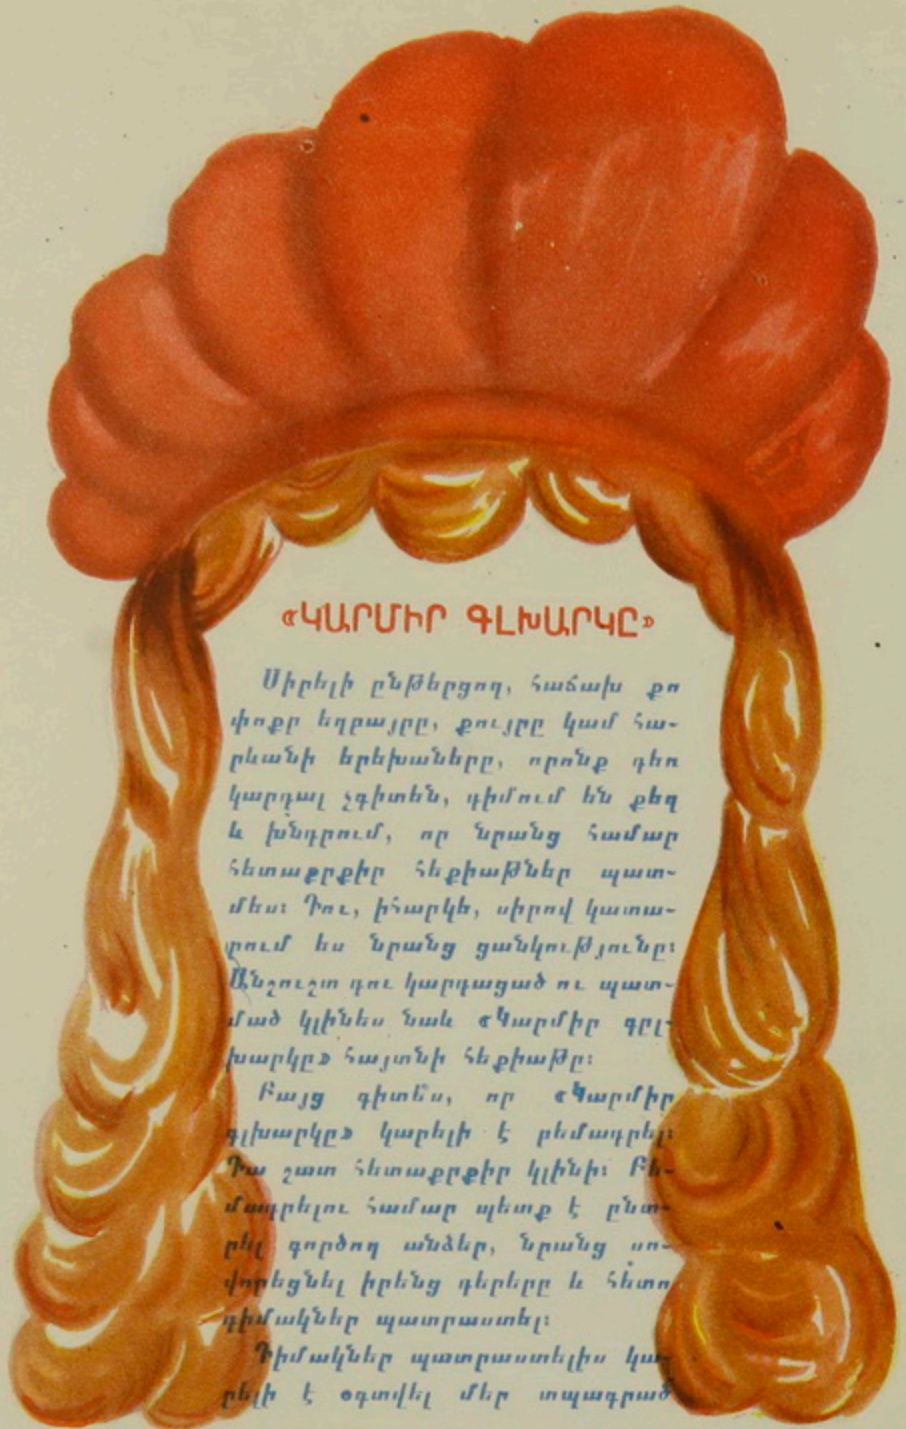 «ԿԱՐՄԻՐ ԳԼԽԱՐԿԸ»
Սիրելի ընթերցող, հաճախ քո
փոքր եղբայրը, քույրը կամ հա-
րևանի երեխաները, որոնք դեռ
կարդալ չգիտեն, դիմում են քեզ
և խնդրում, որ նրանց համար
հետաքրքիր հեքիաթներ պատ-
մես: Դու, իհարկե, սիրով կատա-
րում ես նրանց ցանկությունը:
Անշուշտ դու կարդացած ու պատ-
մած կլինես նաև «Կարմիր գըլ-
խարկը» հայտնի հեքիաթը:
Բայց գիտե՞ս, որ «Կարմիր
գլխարկը» կարելի է բեմադրել:
Դա շատ հետաքրքիր կլինի: Բե-
մադրելու համար պետք է ընտ-
րել գործող անձեր, նրանց սո-
վորեցնել իրենց դերերը և հետո
դիմակներ պատրաստել:
Դիմակներ պատրաստելիս կա-
րելի է օգտվել մեր տպագրած